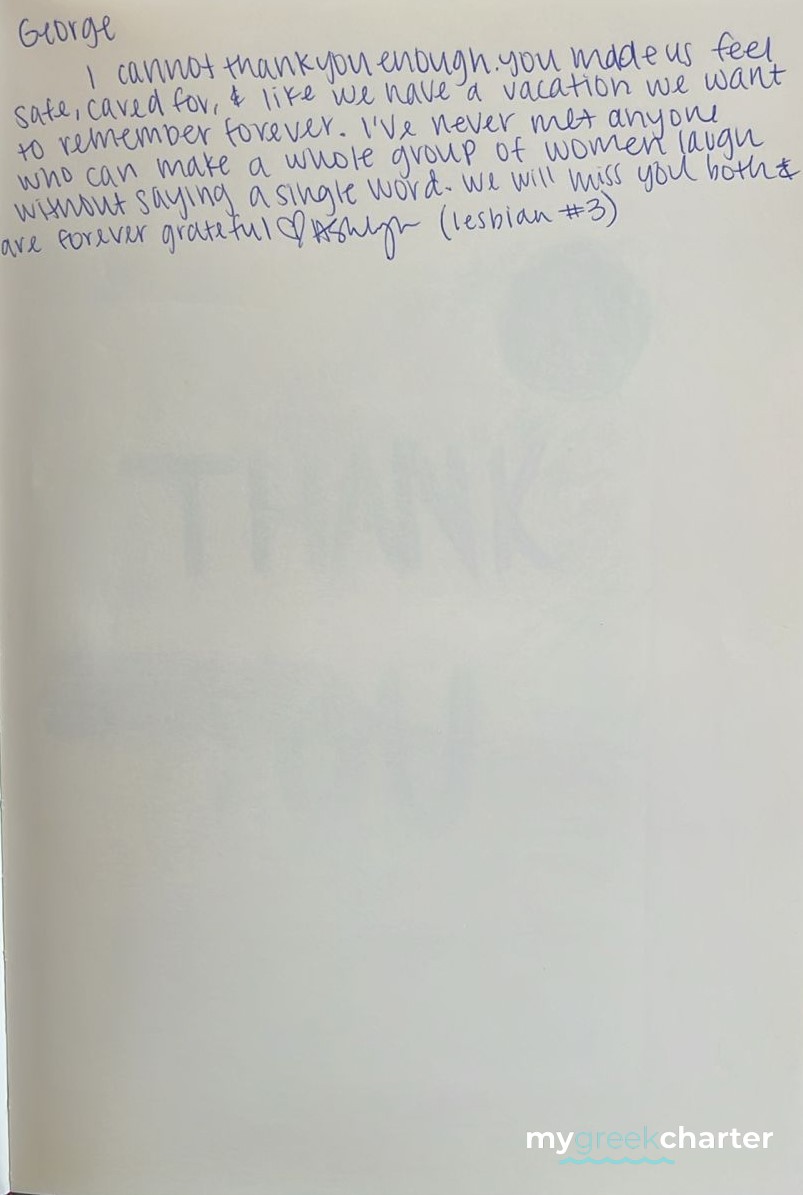 George
I cannot thank you enough. you made us feel
safe, cared for, & like we have a vacation we want
to remember forever. I've never met anyone
who can make a whole group of women laugh
without saying a single word. we will miss you both &
are forever grateful ♡ Ashlyn (lesbian #3)
mygreekcharter